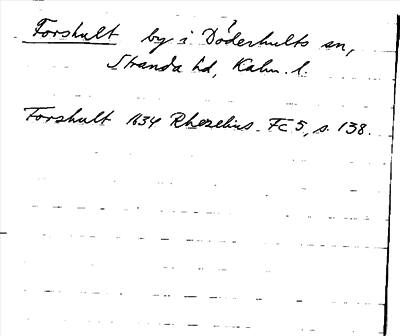 Forshult by i Döderhults sn,
Stranda hd, Kalm. l.
Forshult 1634 Rhezelius Fc 5, s. 138.